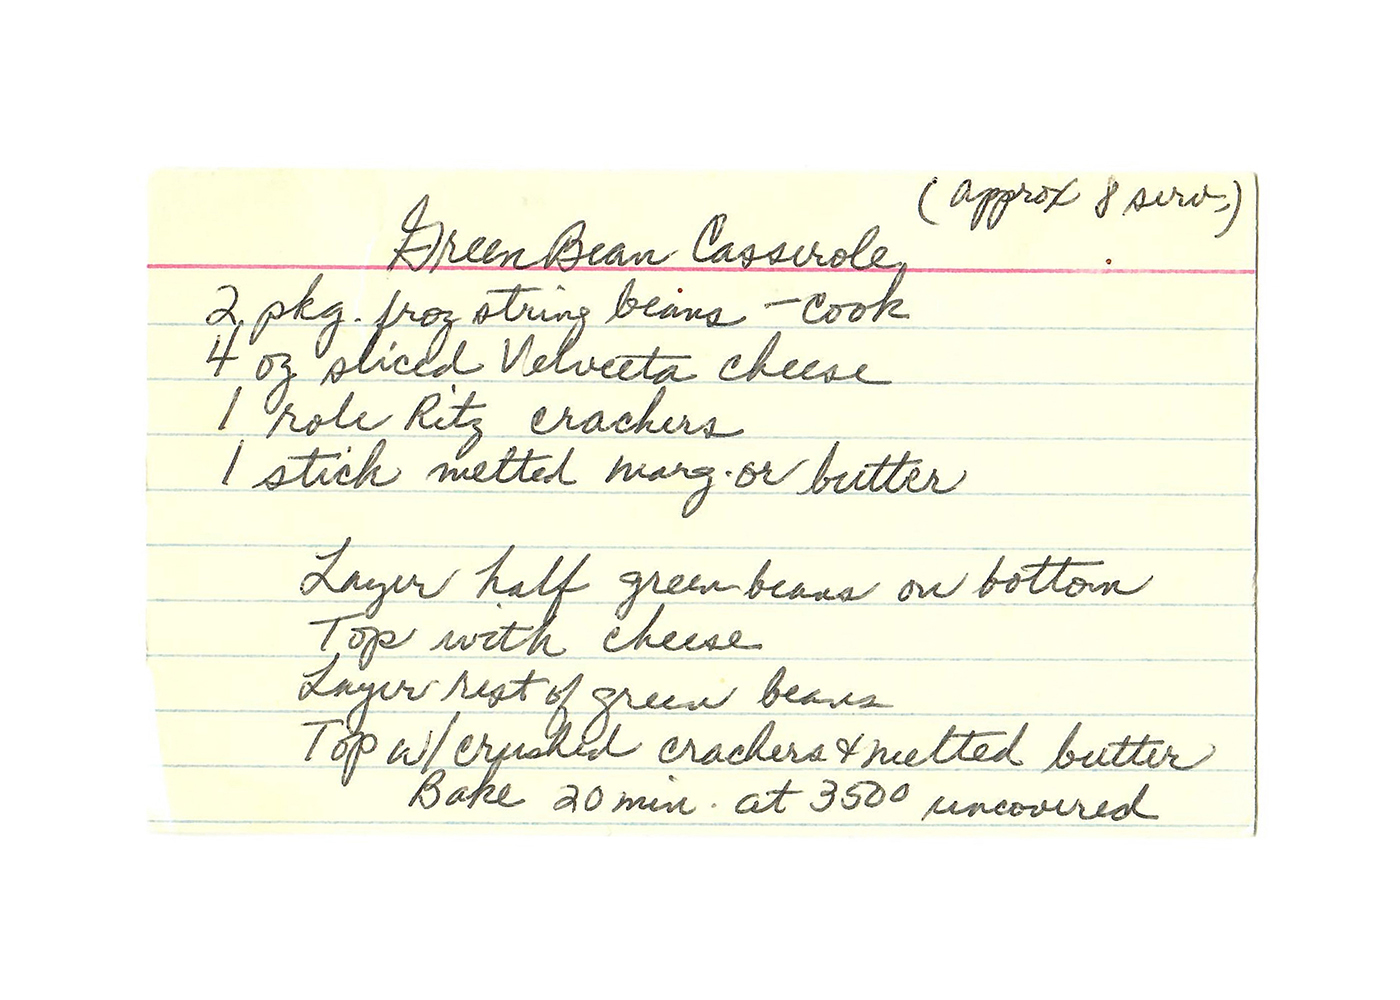 (approx 8 serv.)
Green Bean Casserole
2 pkg. froz string beans - cook
4 oz sliced Velveeta cheese
1 role Ritz crackers
1 stick melted marg. or butter
Layer half green beans on bottom
Top with cheese
Layer rest of green beans
Top w/ crushed crackers & melted butter
Bake 20 min. at 350° uncovered